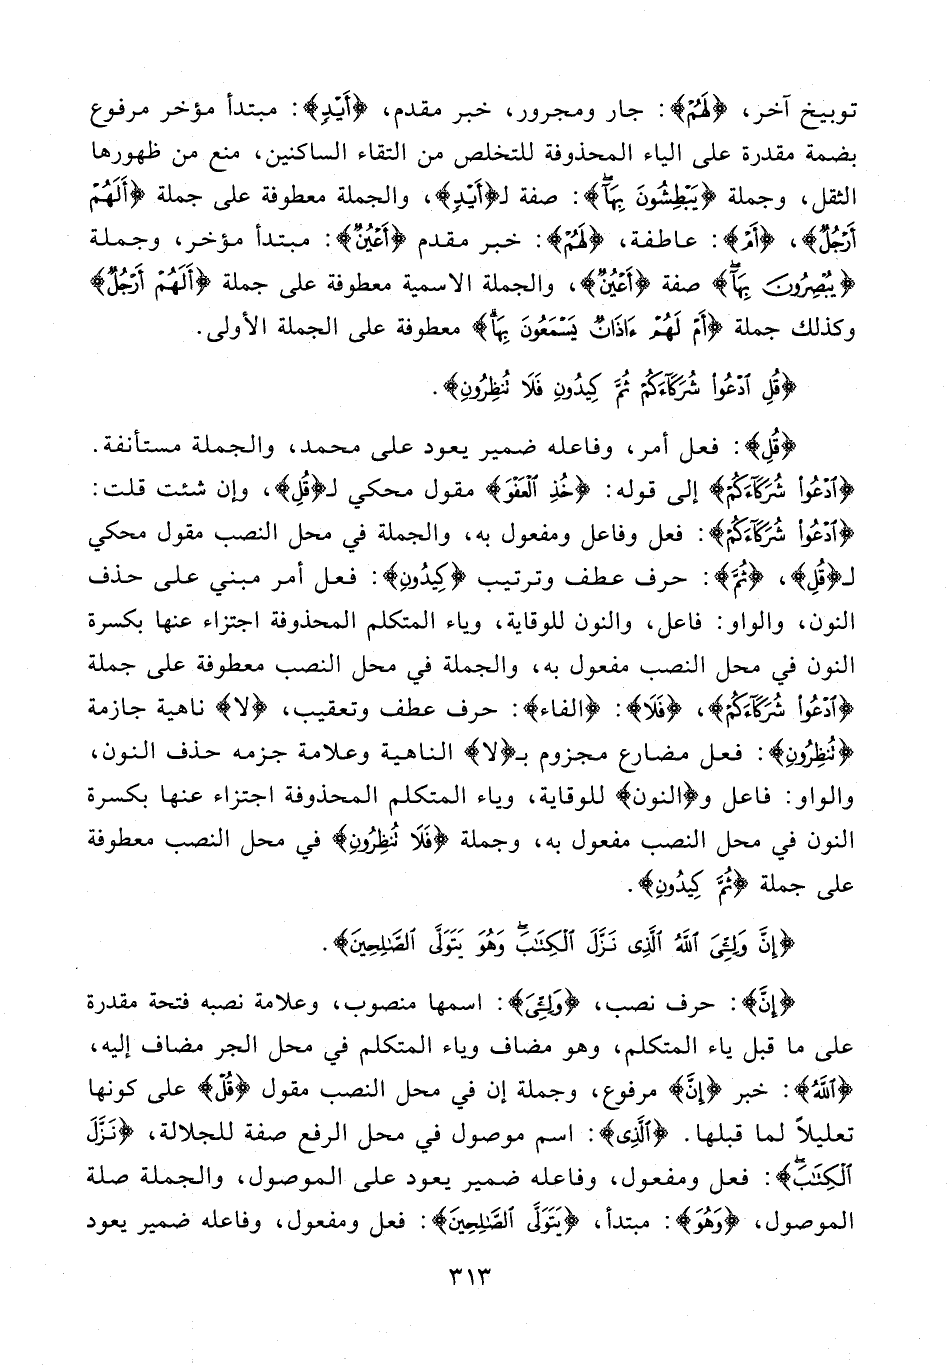 توبيخ آخر، ﴿لَهُمْ﴾: جار ومجرور، خبر مقدم، ﴿أَيْدٍ﴾: مبتدأ مؤخر مرفوع
بضمة مقدرة على الياء المحذوفة للتخلص من التقاء الساكنين، منع من ظهورها
الثقل، وجملة ﴿يَبْطِشُونَ بِهَآ﴾: صفة لـ﴿أَيْدٍ﴾، والجملة معطوفة على جملة ﴿أَلَهُمْ
أَرْجُلٌ﴾، ﴿أَمْ﴾: عاطفة، ﴿لَهُمْ﴾: خبر مقدم ﴿أَعْيُنٌ﴾: مبتدأ مؤخر، وجملة
﴿يُبْصِرُونَ بِهَآ﴾ صفة ﴿أَعْيُنٌ﴾، والجملة الاسمية معطوفة على جملة ﴿أَلَهُمْ أَرْجُلٌ﴾
وكذلك جملة ﴿أَمْ لَهُمْ ءَاذَانٌ يَسْمَعُونَ بِهَا﴾ معطوفة على الجملة الأولى.
﴿قُلِ ٱدْعُوا۟ شُرَكَآءَكُمْ ثُمَّ كِيدُونِ فَلَا تُنظِرُونِ﴾.
﴿قُلِ﴾: فعل أمر، وفاعله ضمير يعود على محمد، والجملة مستأنفة.
﴿ٱدْعُوا۟ شُرَكَآءَكُمْ﴾ إلى قوله: ﴿خُذِ ٱلْعَفْوَ﴾ مقول محكي لـ﴿قُلِ﴾، وإن شئت قلت:
﴿ٱدْعُوا۟ شُرَكَآءَكُمْ﴾: فعل وفاعل ومفعول به، والجملة في محل النصب مقول محكي
لـ﴿قُلِ﴾، ﴿ثُمَّ﴾: حرف عطف وترتيب ﴿كِيدُونِ﴾: فعل أمر مبني على حذف
النون، والواو: فاعل، والنون للوقاية، وياء المتكلم المحذوفة اجتزاء عنها بكسرة
النون في محل النصب مفعول به، والجملة في محل النصب معطوفة على جملة
﴿ٱدْعُوا۟ شُرَكَآءَكُمْ﴾، ﴿فَلَا﴾: ﴿الفاء﴾: حرف عطف وتعقيب، ﴿لا﴾ ناهية جازمة
﴿تُنظِرُونِ﴾: فعل مضارع مجزوم بـ﴿لا﴾ الناهية وعلامة جزمه حذف النون،
والواو: فاعل و﴿النون﴾ للوقاية، وياء المتكلم المحذوفة اجتزاء عنها بكسرة
النون في محل النصب مفعول به، وجملة ﴿فَلَا تُنظِرُونِ﴾ في محل النصب معطوفة
على جملة ﴿ثُمَّ كِيدُونِ﴾.
﴿إِنَّ وَلِـِّۧىَ ٱللَّهُ ٱلَّذِى نَزَّلَ ٱلْكِتَٰبَ وَهُوَ يَتَوَلَّى ٱلصَّٰلِحِينَ﴾.
﴿إِنَّ﴾: حرف نصب، ﴿وَلِـِّۧىَ﴾: اسمها منصوب، وعلامة نصبه فتحة مقدرة
على ما قبل ياء المتكلم، وهو مضاف وياء المتكلم في محل الجر مضاف إليه،
﴿ٱللَّهُ﴾: خبر ﴿إِنَّ﴾ مرفوع، وجملة إن في محل النصب مقول ﴿قُلْ﴾ على كونها
تعليلاً لما قبلها. ﴿ٱلَّذِى﴾: اسم موصول في محل الرفع صفة للجلالة، ﴿نَزَّلَ
ٱلْكِتَٰبَ﴾: فعل ومفعول، وفاعله ضمير يعود على الموصول، والجملة صلة
الموصول، ﴿وَهُوَ﴾: مبتدأ، ﴿يَتَوَلَّى ٱلصَّٰلِحِينَ﴾: فعل ومفعول، وفاعله ضمير يعود
٣١٣